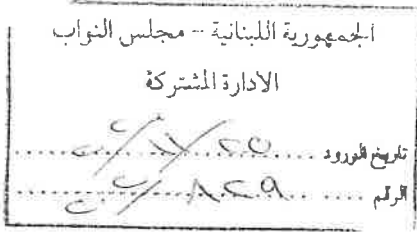 الجمهورية اللبنانية - مجلس النواب
الادارة المشتركة
تاريخ الورود
الرقم ٨٢٩